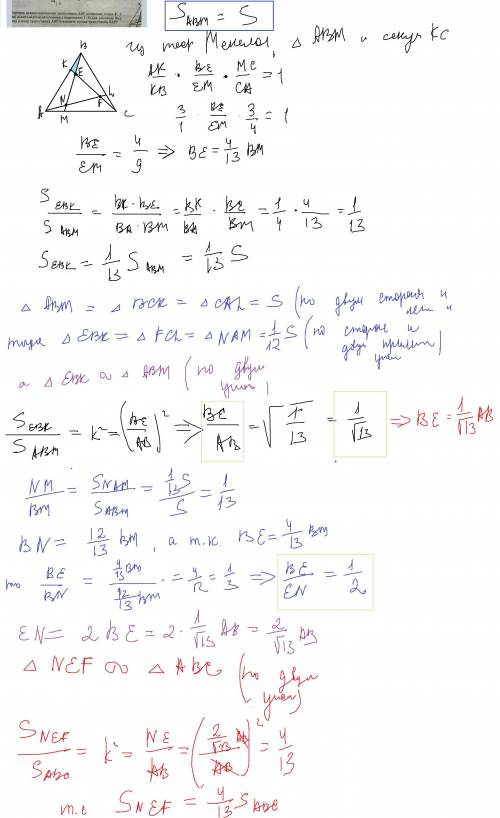 S_ABM = S
из теор Менелая, △ ABM и секущ KC
B
K
E
L
N
F
A
M
C
AK/KB · BE/EM · MC/CA = 1
3/1 · BE/EM · 3/4 = 1
BE/EM = 4/9 ⇒ BE = 4/13 BM
S_EBK/S_ABM = BK·BE/BA·BM = BK/BA · BE/BM = 1/4 · 4/13 = 1/13
S_EBK = 1/13 S_ABM = 1/13 S
△ ABM = △ BCK = △ CAL = S (по двум сторонам и
тогда △ EBK = △ FCL = △ NAM = 1/12 S (по стороне и двум прилеж углам)
а △ EBK ∾ △ ABM (по двум углам)
S_EBK/S_ABM = K² = (BE/AB)² ⇒ BE/AB = √1/13 = 1/√13 ⇒ BE = 1/√13 AB
NM/BM = S_NAM/S_ABM = 1/13 S/S = 1/13
BN = 12/13 BM, а т.к. BE = 4/13 BM
то BE/BN = 4/13 BM/12/13 BM = 4/12 = 1/3 ⇒ BE/EN = 1/2
EN = 2 BE = 2 · 1/√13 AB = 2/√13 AB
△ NEF ∾ △ ABC (по двум углам)
S_NEF/S_ABC = K² = NE/AB = (2/√13 AB/AB)² = 4/13
т.е S_NEF = 4/13 S_ABC